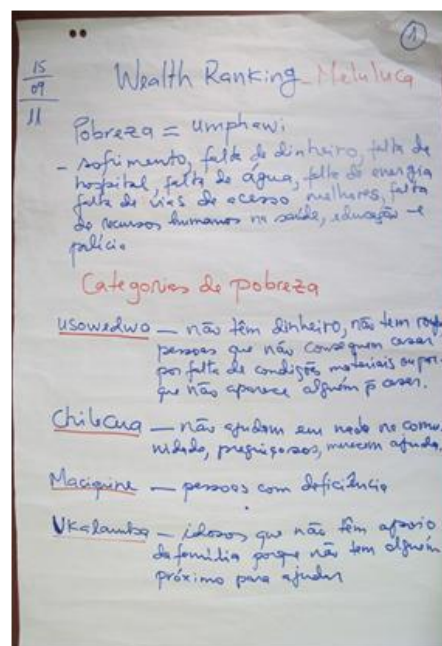 1
15
09
11
Wealth Ranking - Meluluca
Pobreza = umphawi
- sofrimento, falta de dinheiro, falta de
hospital, falta de água, falta de energia
falta de vias de acesso melhores, falta
de recursos humanos na saúde, educação e
polícia
Categorias de pobreza
usowedwa — não têm dinheiro, não tem roupa,
pessoas que não conseguem casar
por falta de condições materiais ou por-
que não aparece alguém p̄ casar.
Chilecua — não ajudam em nada na comu-
nidade, preguiçosos, merecem ajuda.
Maciquine — pessoas com deficiência
Ukalamba — idosos que não têm apoio
da família porque não tem alguém
próximo para ajudar